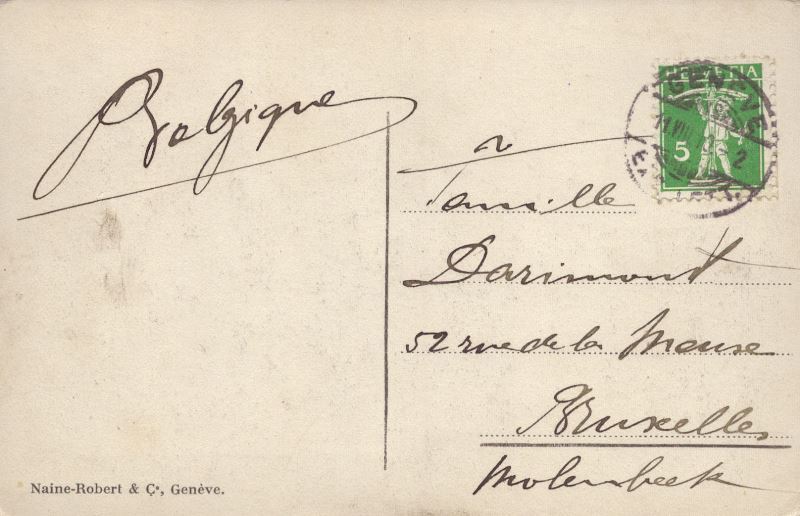 Belgique
HELVETIA
GENÈVE
5
Famille
Darimont
52 rue de la Meuse
Bruxelles
Molenbeek
Naine-Robert & Cº, Genève.